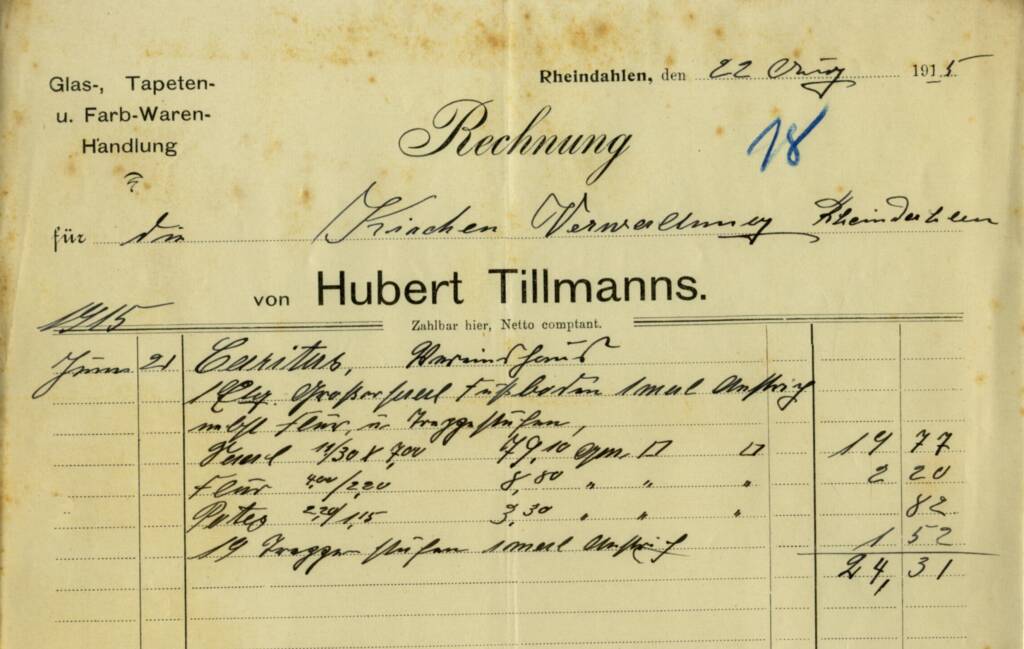 Glas-, Tapeten-
u. Farb-Waren-
Handlung
Rheindahlen, den 22 Aug 1915
Rechnung
18
für die Kirchen Verwaltung Rheindahlen
von Hubert Tillmanns.
Zahlbar hier, Netto comptant.
1915
Juni 21 Caritas, Vereinshaus
1 Etg. Großer Saal Fußboden 1 mal Anstrich
nebst Flur, u. Treppestufen,
Saal 11/30 x 7,00 79,10 qm 19 77
Flur 4,00/2,20 8,80 " " " 2 20
2,20/1,15 " " " 82
19 Treppenstufen 1 mal Anstrich 1 52
24,31